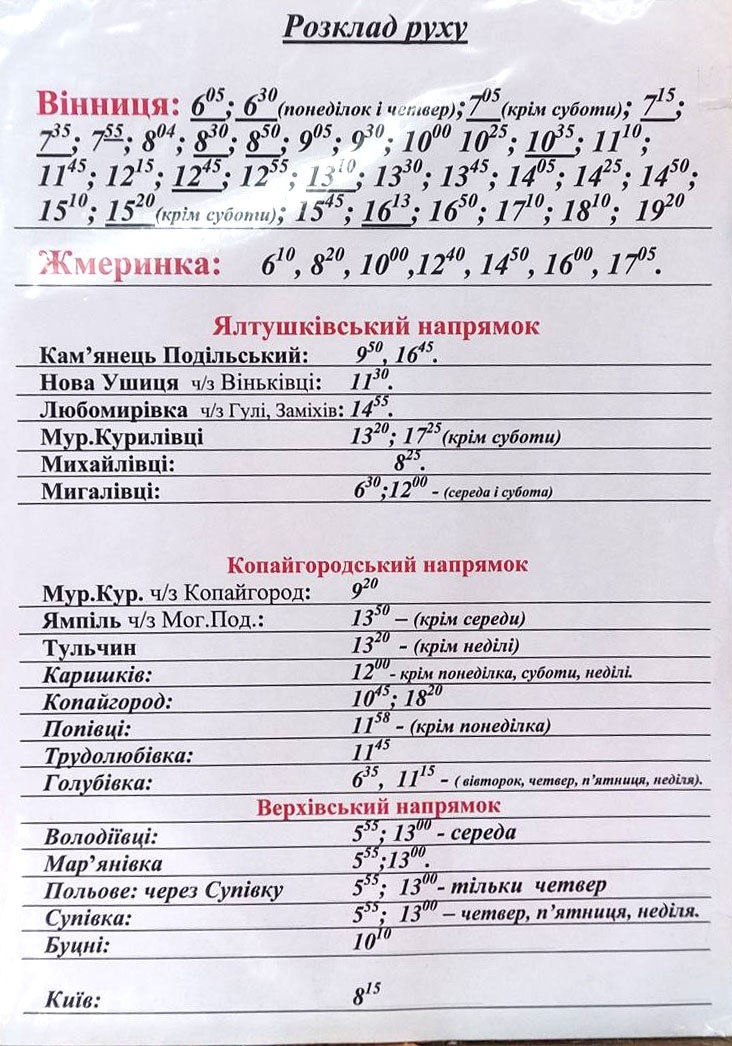 Розклад руху
Вінниця: 6⁰⁵; 6³⁰(понеділок і четвер); 7⁰⁵(крім суботи); 7¹⁵;
7³⁵; 7⁵⁵; 8⁰⁴; 8³⁰; 8⁵⁰; 9⁰⁵; 9³⁰; 10⁰⁰ 10²⁵; 10³⁵; 11¹⁰;
11⁴⁵; 12¹⁵; 12⁴⁵; 12⁵⁵; 13¹⁰; 13³⁰; 13⁴⁵; 14⁰⁵; 14²⁵; 14⁵⁰;
15¹⁰; 15²⁰(крім суботи); 15⁴⁵; 16¹³; 16⁵⁰; 17¹⁰; 18¹⁰; 19²⁰
Жмеринка: 6¹⁰, 8²⁰, 10⁰⁰,12⁴⁰, 14⁵⁰, 16⁰⁰, 17⁰⁵.
Ялтушківський напрямок
Кам’янець Подільський: 9⁵⁰, 16⁴⁵.
Нова Ушиця ч/з Віньківці: 11³⁰.
Любомирівка ч/з Гулі, Заміхів: 14⁵⁵.
Мур.Курилівці 13²⁰; 17²⁵(крім суботи)
Михайлівці: 8²⁵.
Мигалівці: 6³⁰;12⁰⁰ - (середа і субота)
Копайгородський напрямок
Мур.Кур. ч/з Копайгород: 9²⁰
Ямпіль ч/з Мог.Под.: 13⁵⁰ – (крім середи)
Тульчин 13²⁰ - (крім неділі)
Каришків: 12⁰⁰- крім понеділка, суботи, неділі.
Копайгород: 10⁴⁵; 18²⁰
Попівці: 11⁵⁸ - (крім понеділка)
Трудолюбівка: 11⁴⁵
Голубівка: 6³⁵, 11¹⁵ - ( вівторок, четвер, п’ятниця, неділя).
Верхівський напрямок
Володіївці: 5⁵⁵; 13⁰⁰ - середа
Мар’янівка 5⁵⁵;13⁰⁰.
Польове: через Супівку 5⁵⁵; 13⁰⁰- тільки четвер
Супівка: 5⁵⁵; 13⁰⁰ – четвер, п’ятниця, неділя.
Буцні: 10¹⁰
Київ: 8¹⁵